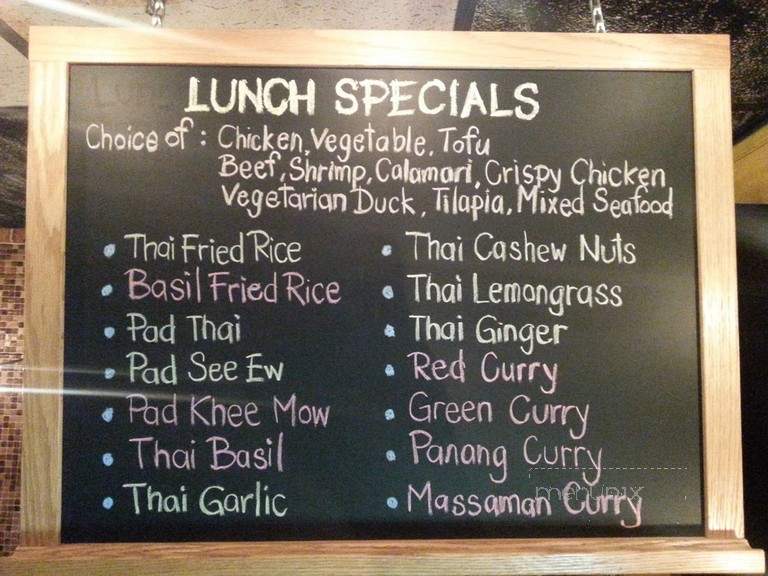 LUNCH SPECIALS
Choice of : Chicken, Vegetable, Tofu
Beef, Shrimp, Calamari, Crispy Chicken
Vegetarian Duck, Tilapia, Mixed Seafood
• Thai Fried Rice
• Basil Fried Rice
• Pad Thai
• Pad See Ew
• Pad Khee Mow
• Thai Basil
• Thai Garlic
• Thai Cashew Nuts
• Thai Lemongrass
• Thai Ginger
• Red Curry
• Green Curry
• Panang Curry
• Massaman Curry
menupix